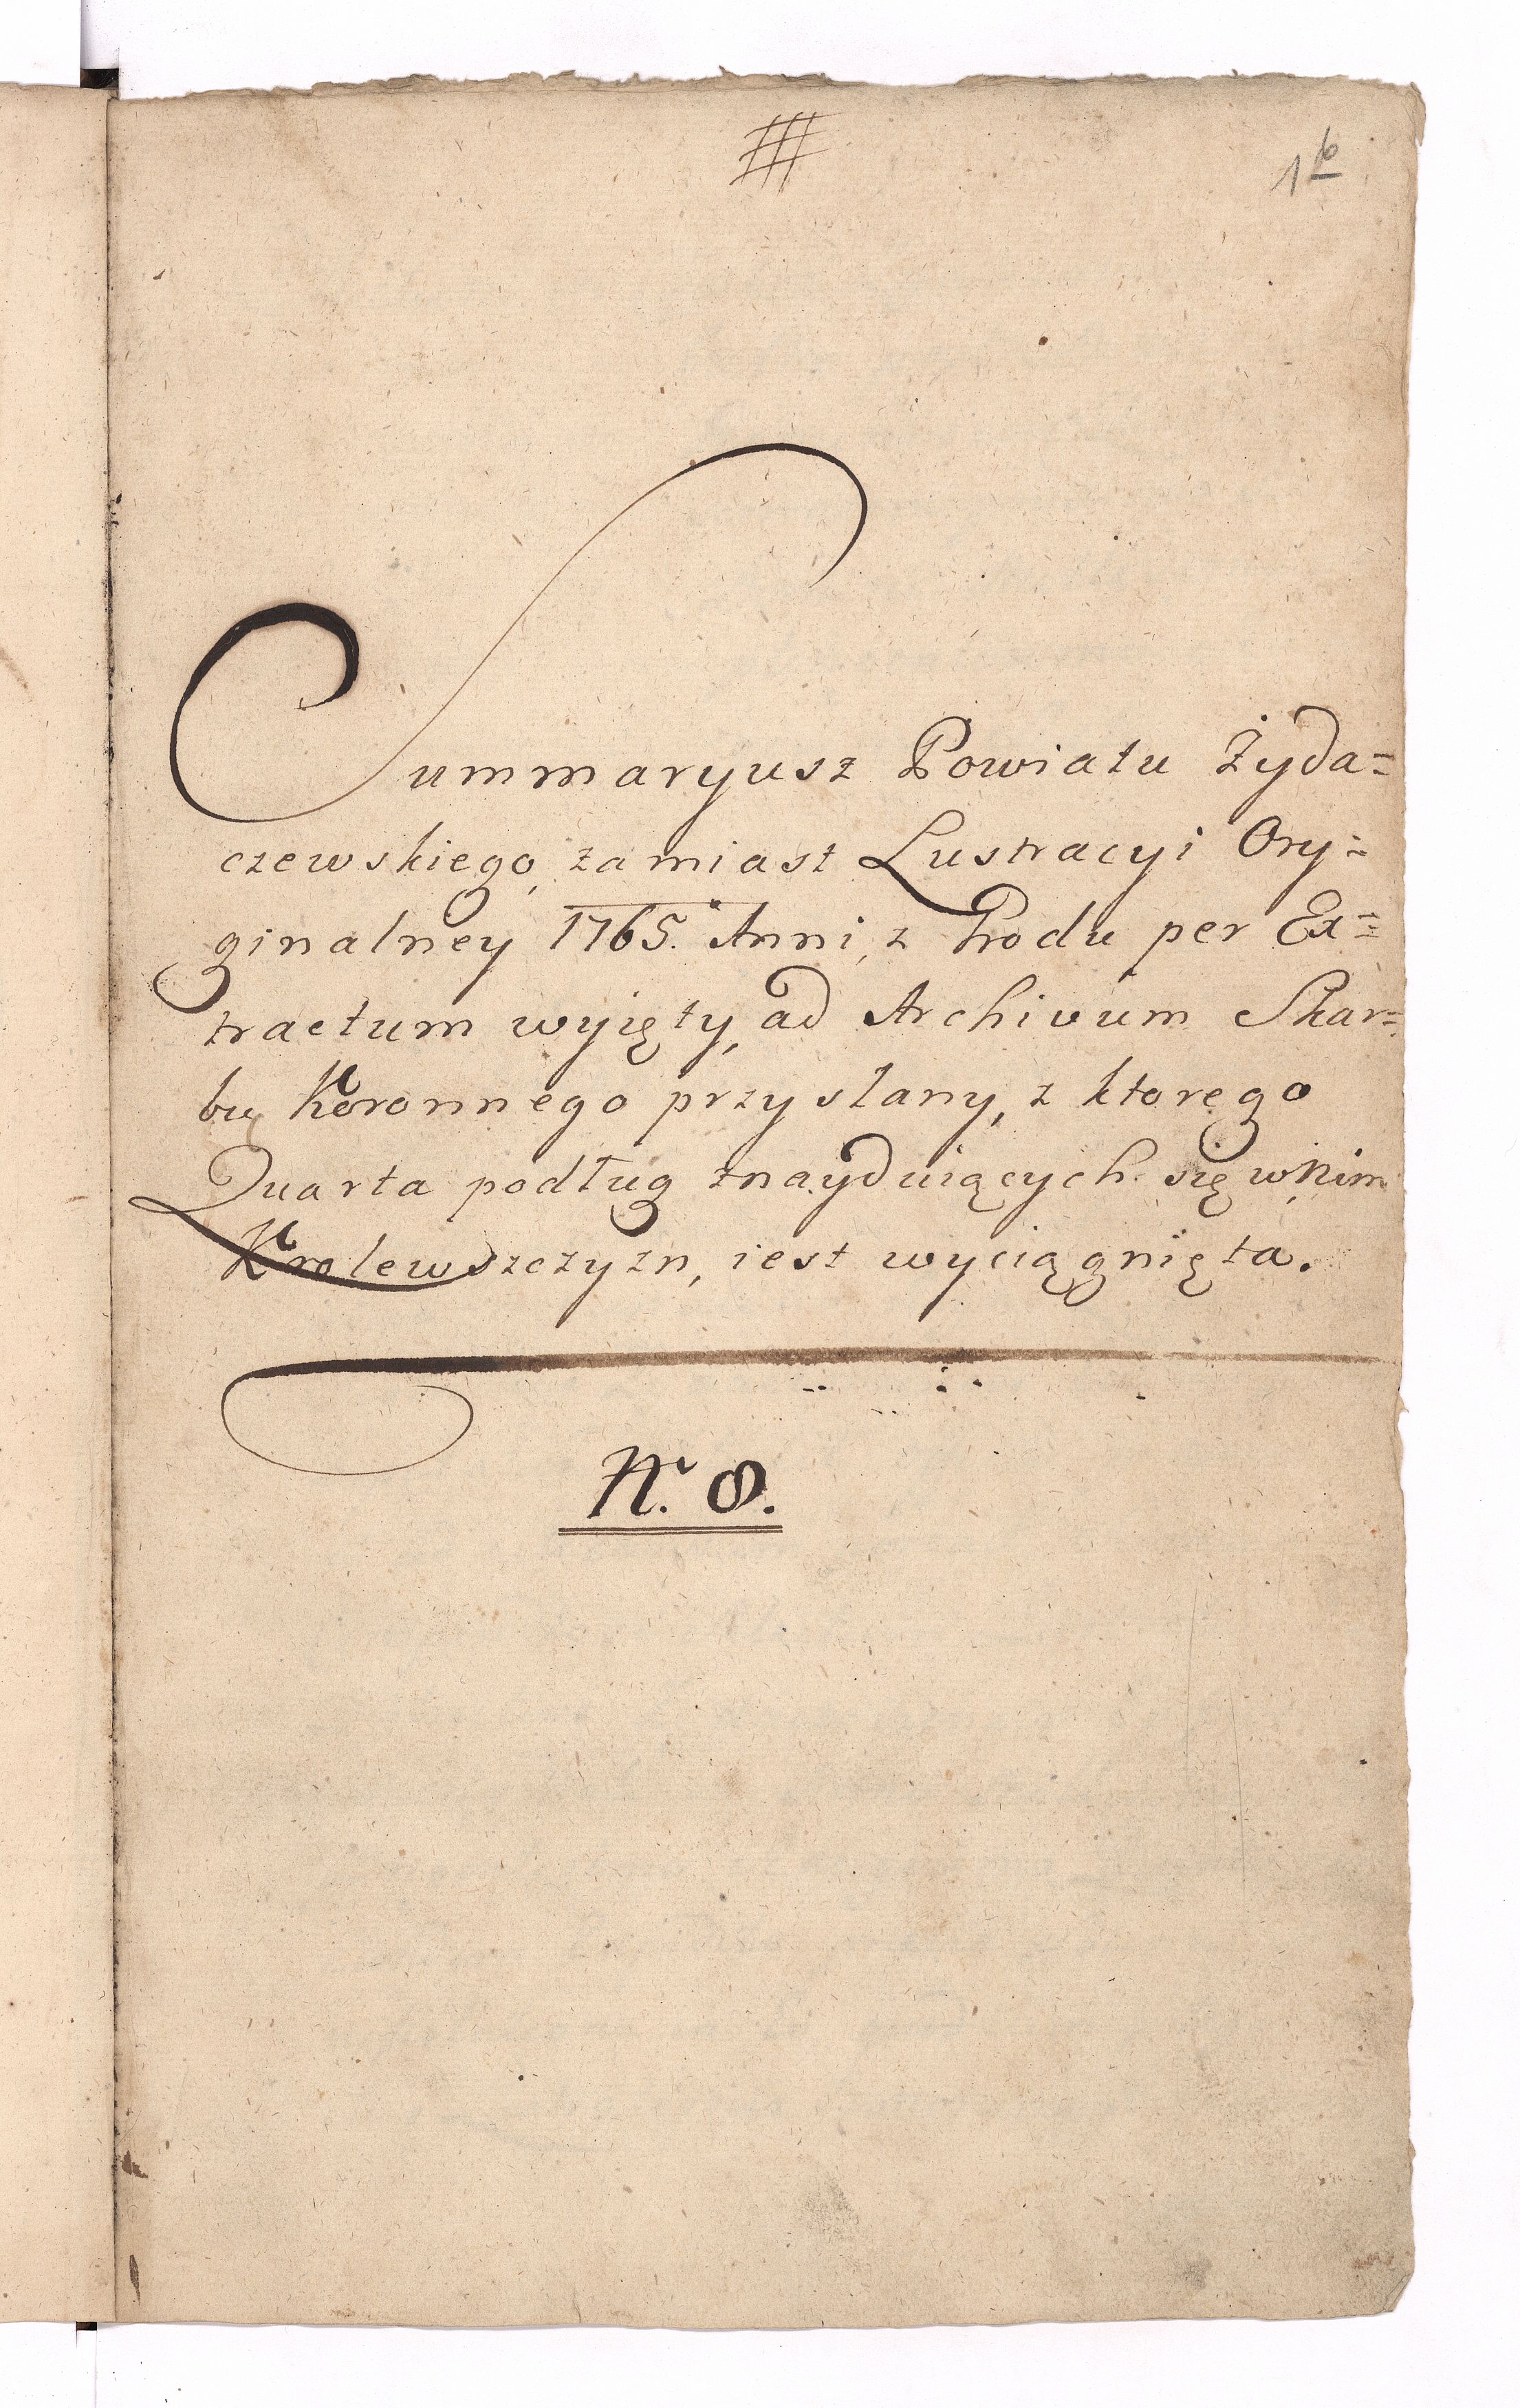 1b
Summaryusz Powiatu Żyda=
czewskiego, zamiast Lustracyi Ory=
ginalney 1765. Anni, z Grodu per Ex=
tractum wyięty, ad Archivum Skar=
bu Koronnego przysłany, z ktorego
Quarta podług znayduiących się w nim
Krolewszczyzn, iest wyciągnięta.
N. 8.